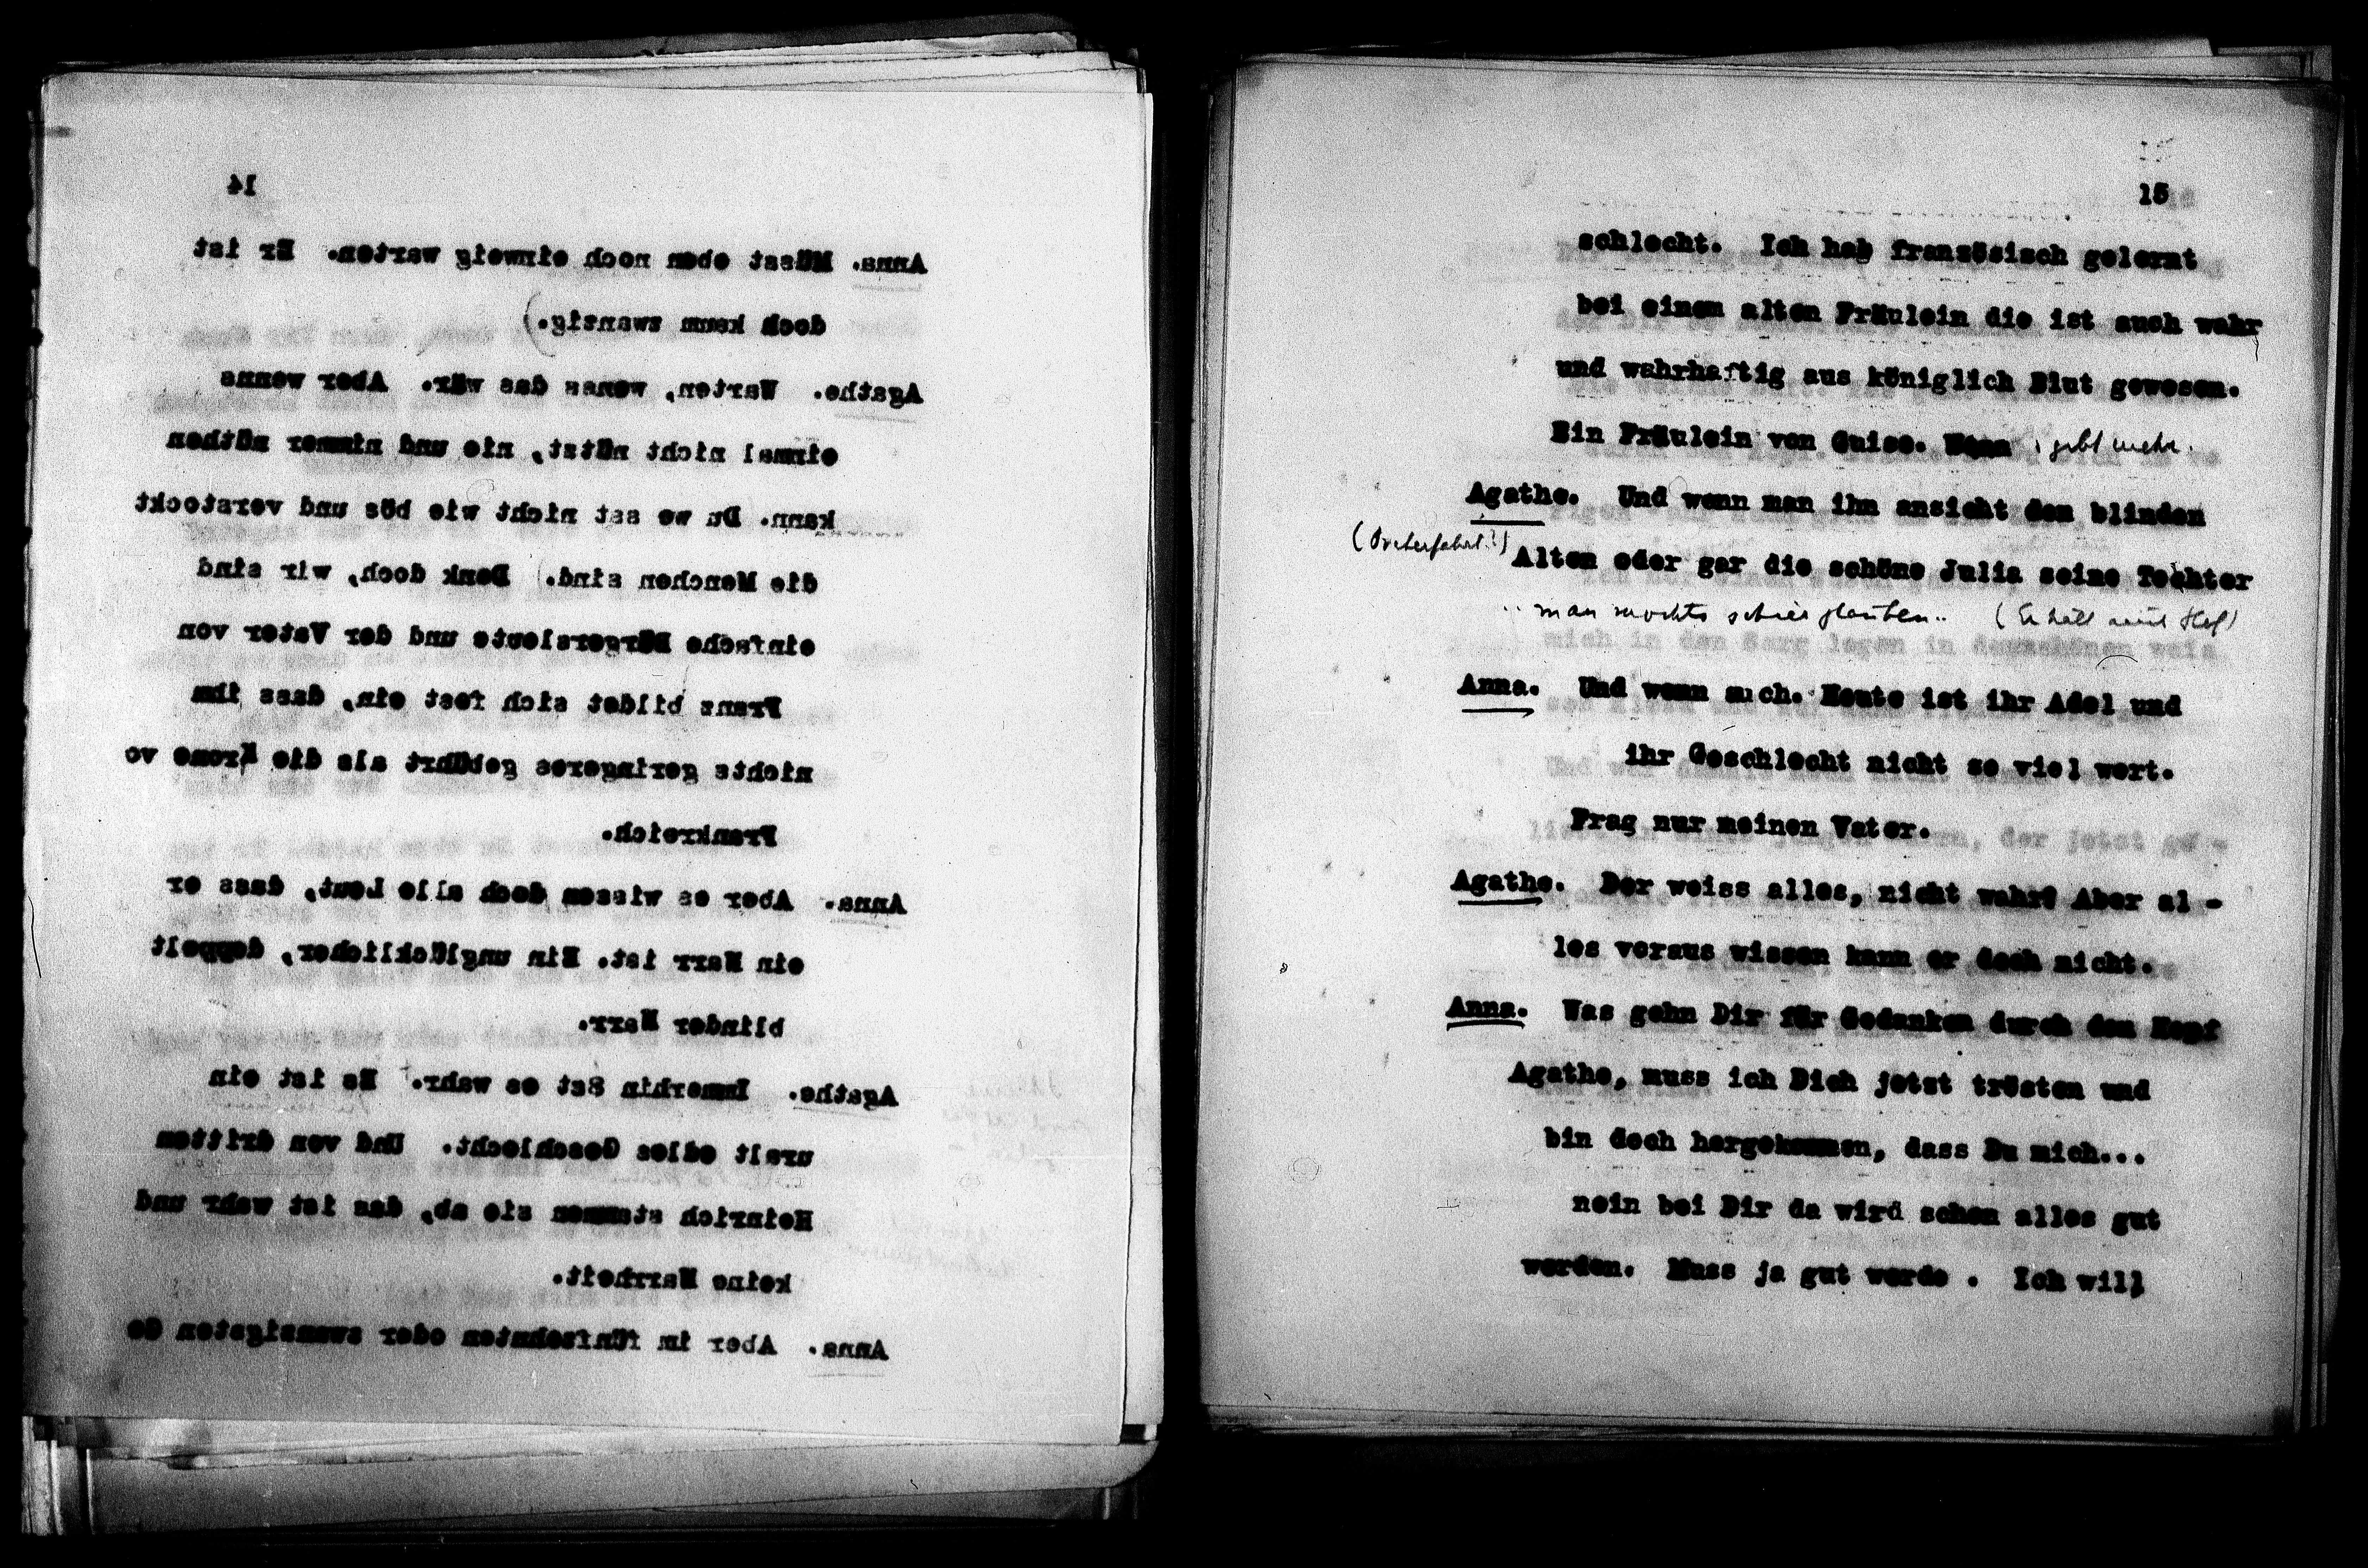 14
Anna. Müsst eben noch einweig warten. Er ist
doch kaum zwanzig.)
Agathe. Warten, wenns das wär. Aber wenns
einmal nicht nützt, nie und nimmer nüthen
kann. Du we sst nicht wie bös und versteckt
die Menchen sind. Denk doch, wir sind
einfache Bürgersleute und der Vater von
Franz bildet sich fest ein, dass ihm
nichts geringeres gebührt als die Krone vo
Frankreich.
Anna. Aber es wissen doch alle Leut, dass er
ein Narr ist. Ein unglücklicher, doppelt
blinder Narr.
Agathe. Immerhin Sst es wahr. Es ist ein
uralt edles Geschlecht. Und von dritten
Heinrich stammen sie ab, das ist wahr und
keine Narrheit.
Anna. Aber im fünfzehnten oder zwanzigsten Ge
15
schlecht. Ich hab französisch gelernt
bei einem alten Fräulein die ist auch wahr
und wahrhaftig aus königlich Blut gewesen.
Ein Fräulein von Guise. Wenn gebt mehr.
Agathe. Und wenn man ihn ansieht den blinden
Alten oder gar die schöne Julia seine Tochter
.. man mochts schier glauben.. (Er hält
Anna. Und wenn auch. Heute ist ihr Adel und
ihr Geschlecht nicht so viel wert.
Frag nur meinen Vater.
Agathe. Der weiss alles, nicht wahr? Aber al -
les voraus wissen kann er doch nicht.
Anna. Was gehn Dir für Gedanken durch den Kopf
Agathe, muss ich Dich jetzt trösten und
bin doch hergekommen, dass Du mich...
nein bei Dir da wird schon alles gut
werden. Muss ja gut werde . Ich will